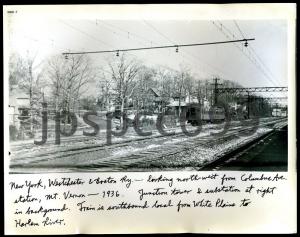 jpspec09
New York, Westchester & Boston Ry — looking northwest from Columbus Ave.
station, Mt. Vernon — 1936. Junction tower & substation at right
in background. Train is southbound local from White Plains to
Harlem River.